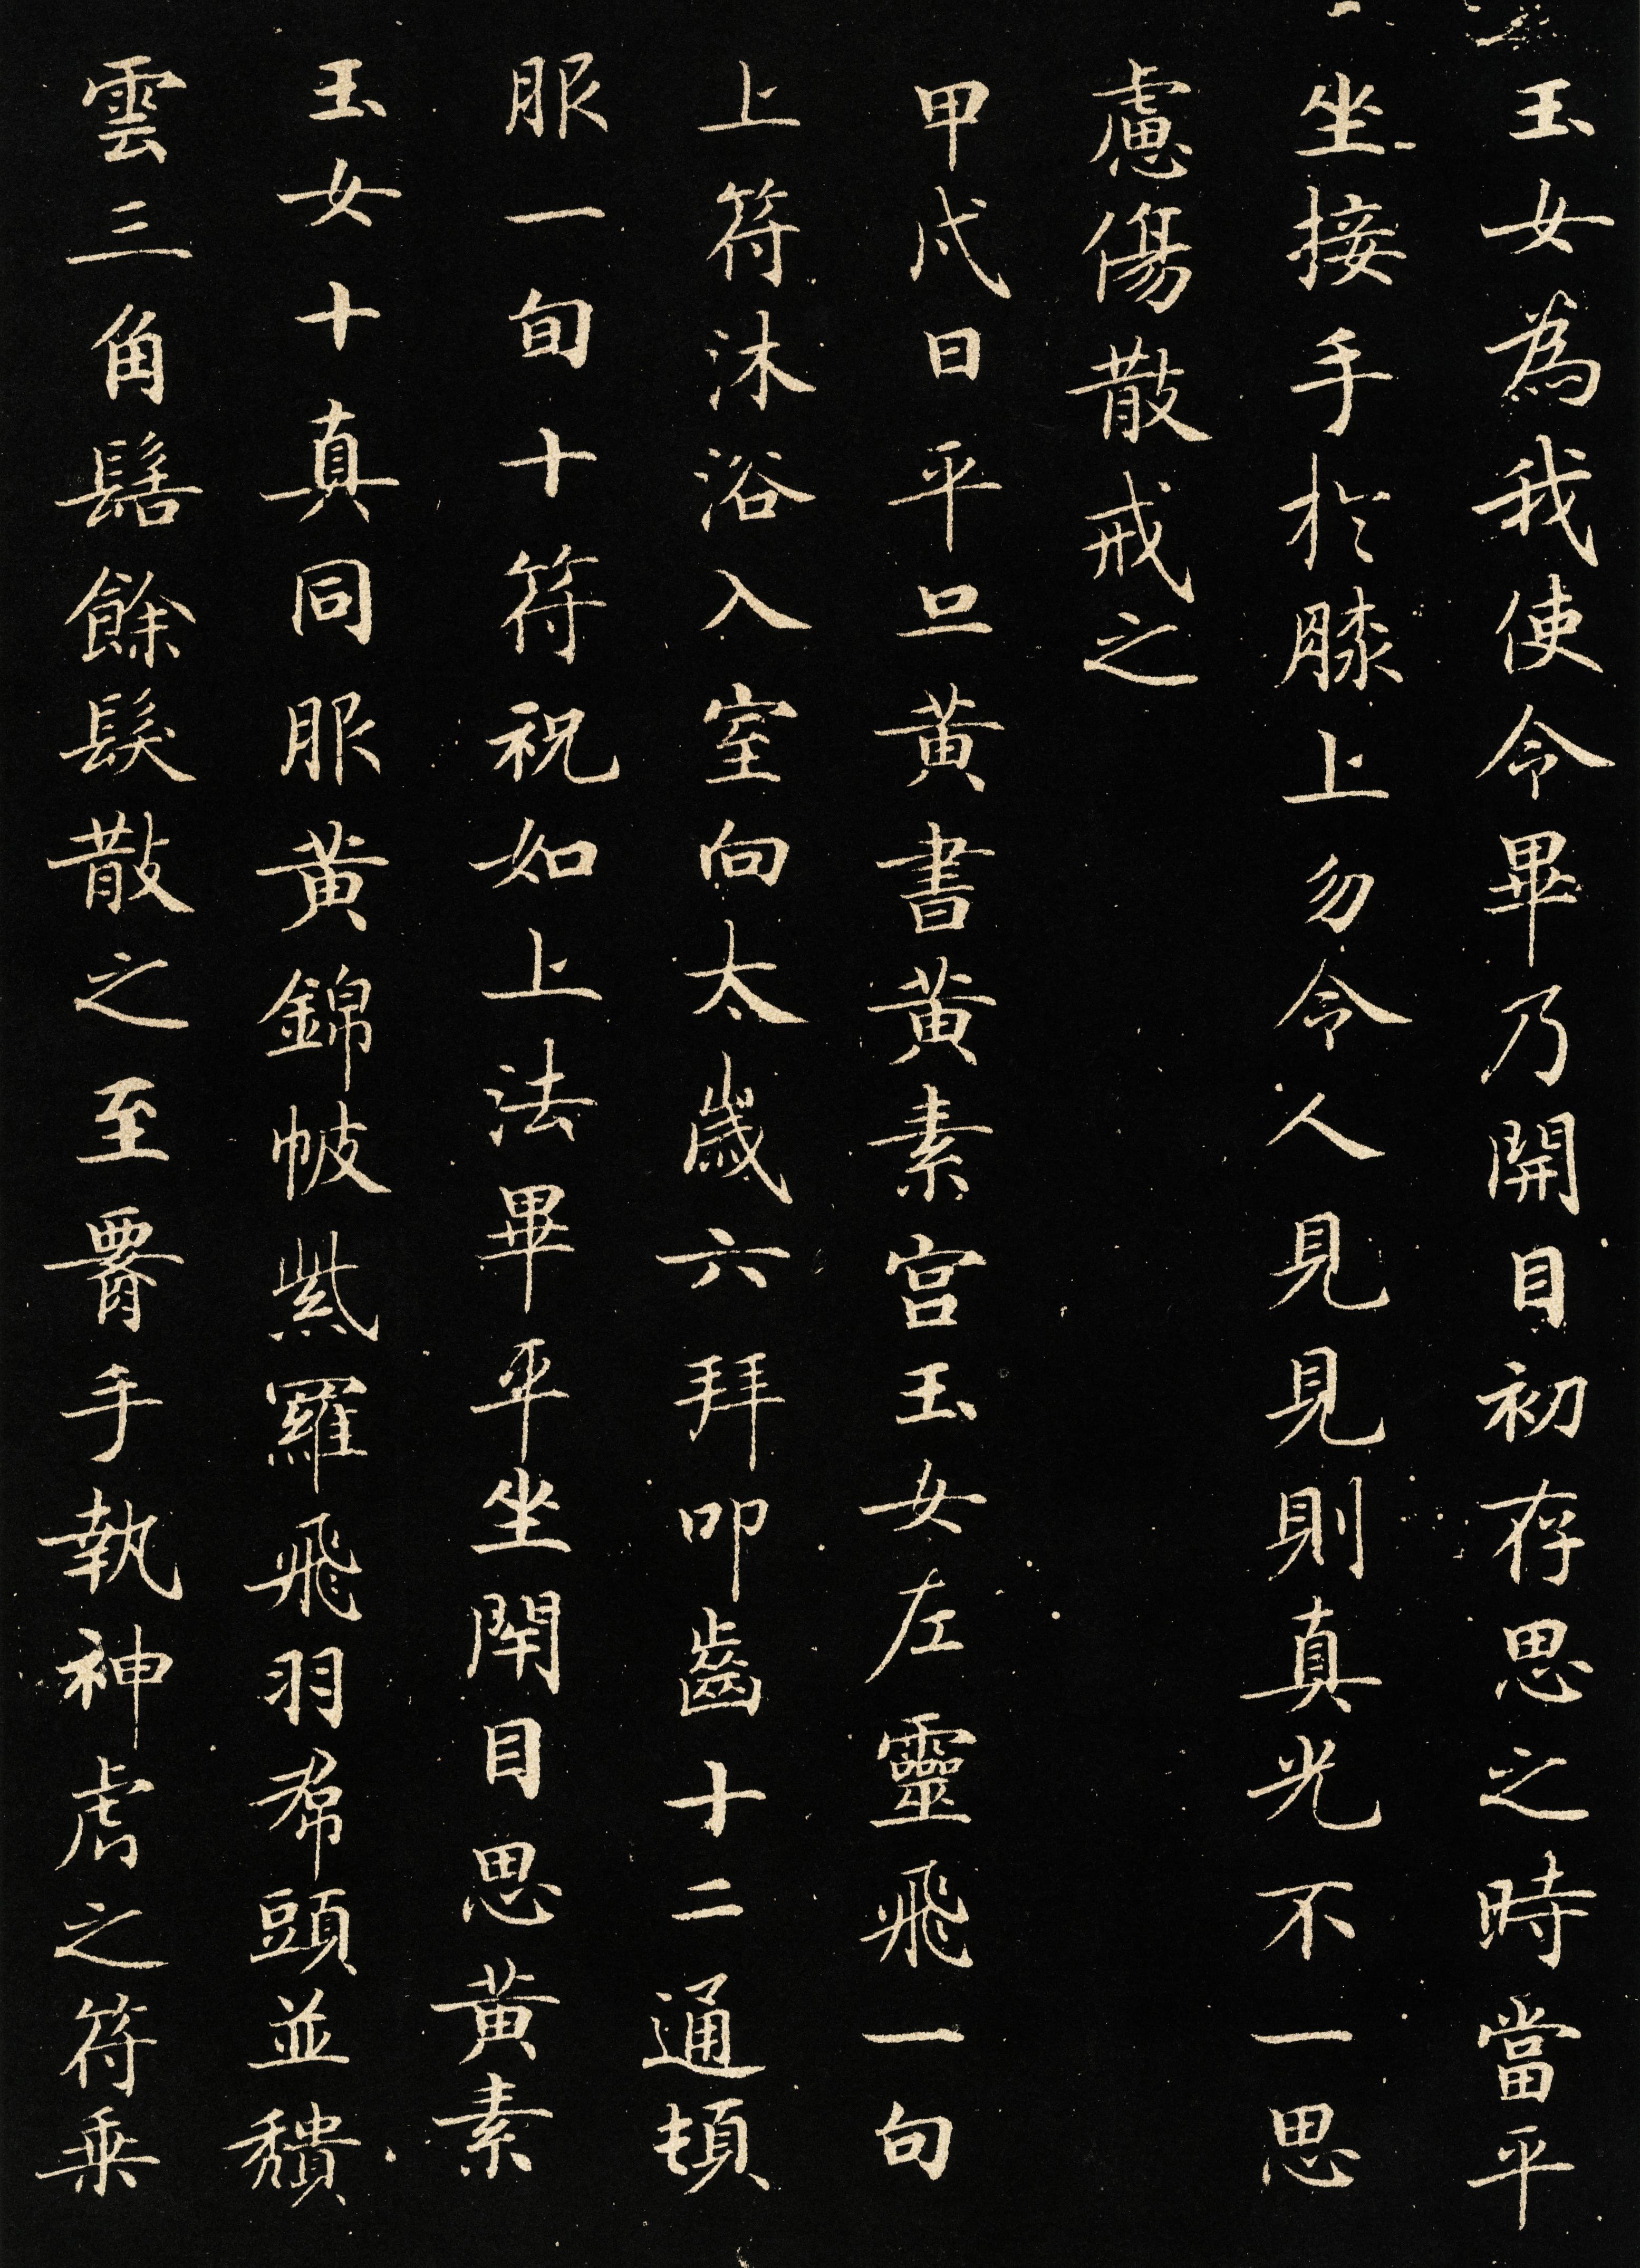 玉女為我使令畢乃開目初存思之時當平
坐接手於膝上勿令人見見則真光不一思
慮傷散戒之
甲戌日平旦黃書黃素宮玉女左靈飛一旬
上符沐浴入室向太歲六拜叩齒十二通頓
服一旬十符祝如上法畢平坐閉目思黃素
玉女十真同服黃錦帔紫羅飛羽帬頭並穨
雲三角髻餘髮散之至署手執神虎之符乘